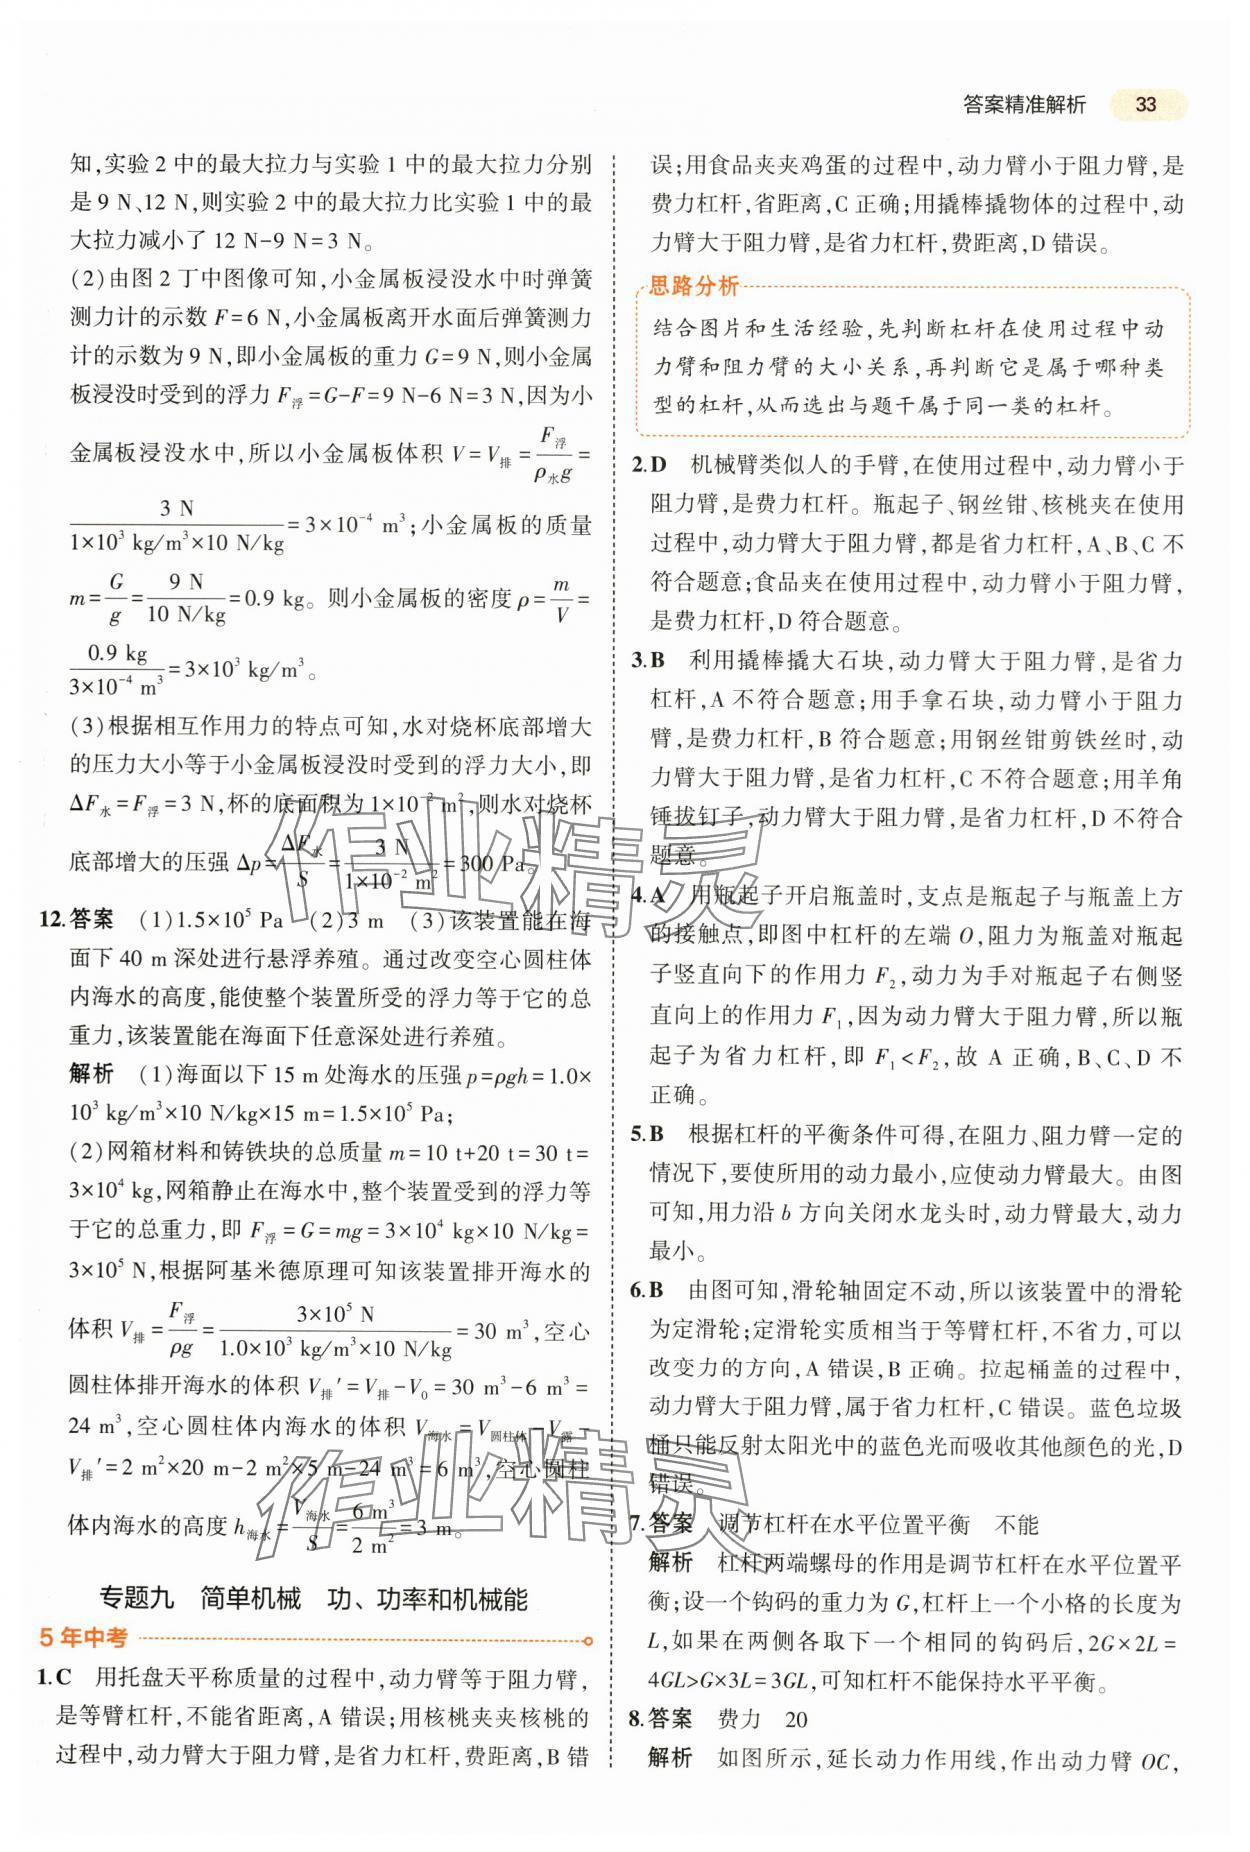 答案精准解析 33
知,实验 2 中的最大拉力与实验 1 中的最大拉力分别
是 9 N、12 N,则实验 2 中的最大拉力比实验 1 中的最
大拉力减小了 12 N-9 N=3 N。
(2)由图 2 丁中图像可知,小金属板浸没水中时弹簧
测力计的示数 F=6 N,小金属板离开水面后弹簧测力
计的示数为 9 N,即小金属板的重力 G=9 N,则小金属
板浸没时受到的浮力 F浮=G-F=9 N-6 N=3 N,因为小
金属板浸没水中,所以小金属板体积 V=V排=F浮/ρ水g=
3 N/(1×10³ kg/m³×10 N/kg)=3×10⁻⁴ m³;小金属板的质量
m=G/g=9 N/(10 N/kg)=0.9 kg。则小金属板的密度 ρ=m/V=
0.9 kg/(3×10⁻⁴ m³)=3×10³ kg/m³。
(3)根据相互作用力的特点可知,水对烧杯底部增大
的压力大小等于小金属板浸没时受到的浮力大小,即
ΔF水=F浮=3 N,杯的底面积为 1×10⁻² m²,则水对烧杯
底部增大的压强 Δp=ΔF水/S=3 N/(1×10⁻² m²)=300 Pa。
12.答案 (1)1.5×10⁵ Pa (2)3 m (3)该装置能在海
面下 40 m 深处进行悬浮养殖。通过改变空心圆柱体
内海水的高度,能使整个装置所受的浮力等于它的总
重力,该装置能在海面下任意深处进行养殖。
解析 (1)海面以下 15 m 处海水的压强 p=ρgh=1.0×
10³ kg/m³×10 N/kg×15 m=1.5×10⁵ Pa;
(2)网箱材料和铸铁块的总质量 m=10 t+20 t=30 t=
3×10⁴ kg,网箱静止在海水中,整个装置受到的浮力等
于它的总重力,即 F浮=G=mg=3×10⁴ kg×10 N/kg=
3×10⁵ N,根据阿基米德原理可知该装置排开海水的
体积 V排=F浮/ρg=3×10⁵ N/(1.0×10³ kg/m³×10 N/kg)=30 m³,空心
圆柱体排开海水的体积 V排′=V排-V₀=30 m³-6 m³=
24 m³,空心圆柱体内海水的体积 V海水=V圆柱体-V露-
V排′=2 m²×20 m-2 m²×5 m-24 m³=6 m³,空心圆柱
体内海水的高度 h海水=V海水/S=6 m³/2 m²=3 m。
专题九 简单机械 功、功率和机械能
5 年中考
1.C 用托盘天平称质量的过程中,动力臂等于阻力臂,
是等臂杠杆,不能省距离,A 错误;用核桃夹夹核桃的
过程中,动力臂大于阻力臂,是省力杠杆,费距离,B 错
误;用食品夹夹鸡蛋的过程中,动力臂小于阻力臂,是
费力杠杆,省距离,C 正确;用撬棒撬物体的过程中,动
力臂大于阻力臂,是省力杠杆,费距离,D 错误。
思路分析
结合图片和生活经验,先判断杠杆在使用过程中动
力臂和阻力臂的大小关系,再判断它是属于哪种类
型的杠杆,从而选出与题干属于同一类的杠杆。
2.D 机械臂类似人的手臂,在使用过程中,动力臂小于
阻力臂,是费力杠杆。瓶起子、钢丝钳、核桃夹在使用
过程中,动力臂大于阻力臂,都是省力杠杆,A、B、C 不
符合题意;食品夹在使用过程中,动力臂小于阻力臂,
是费力杠杆,D 符合题意。
3.B 利用撬棒撬大石块,动力臂大于阻力臂,是省力
杠杆,A 不符合题意;用手拿石块,动力臂小于阻力
臂,是费力杠杆,B 符合题意;用钢丝钳剪铁丝时,动
力臂大于阻力臂,是省力杠杆,C 不符合题意;用羊角
锤拔钉子,动力臂大于阻力臂,是省力杠杆,D 不符合
题意。
4.A 用瓶起子开启瓶盖时,支点是瓶起子与瓶盖上方
的接触点,即图中杠杆的左端 O,阻力为瓶盖对瓶起
子竖直向下的作用力 F₂,动力为手对瓶起子右侧竖
直向上的作用力 F₁,因为动力臂大于阻力臂,所以瓶
起子为省力杠杆,即 F₁<F₂,故 A 正确,B、C、D 不
正确。
5.B 根据杠杆的平衡条件可得,在阻力、阻力臂一定的
情况下,要使所用的动力最小,应使动力臂最大。由图
可知,用力沿 b 方向关闭水龙头时,动力臂最大,动力
最小。
6.B 由图可知,滑轮轴固定不动,所以该装置中的滑轮
为定滑轮;定滑轮实质相当于等臂杠杆,不省力,可以
改变力的方向,A 错误,B 正确。拉起桶盖的过程中,
动力臂大于阻力臂,属于省力杠杆,C 错误。蓝色垃圾
桶只能反射太阳光中的蓝色光而吸收其他颜色的光,D
错误。
7.答案 调节杠杆在水平位置平衡 不能
解析 杠杆两端螺母的作用是调节杠杆在水平位置平
衡;设一个钩码的重力为 G,杠杆上一个小格的长度为
L,如果在两侧各取下一个相同的钩码后,2G×2L=
4GL>G×3L=3GL,可知杠杆不能保持水平平衡。
8.答案 费力 20
解析 如图所示,延长动力作用线,作出动力臂 OC,
作业精灵
作业精灵